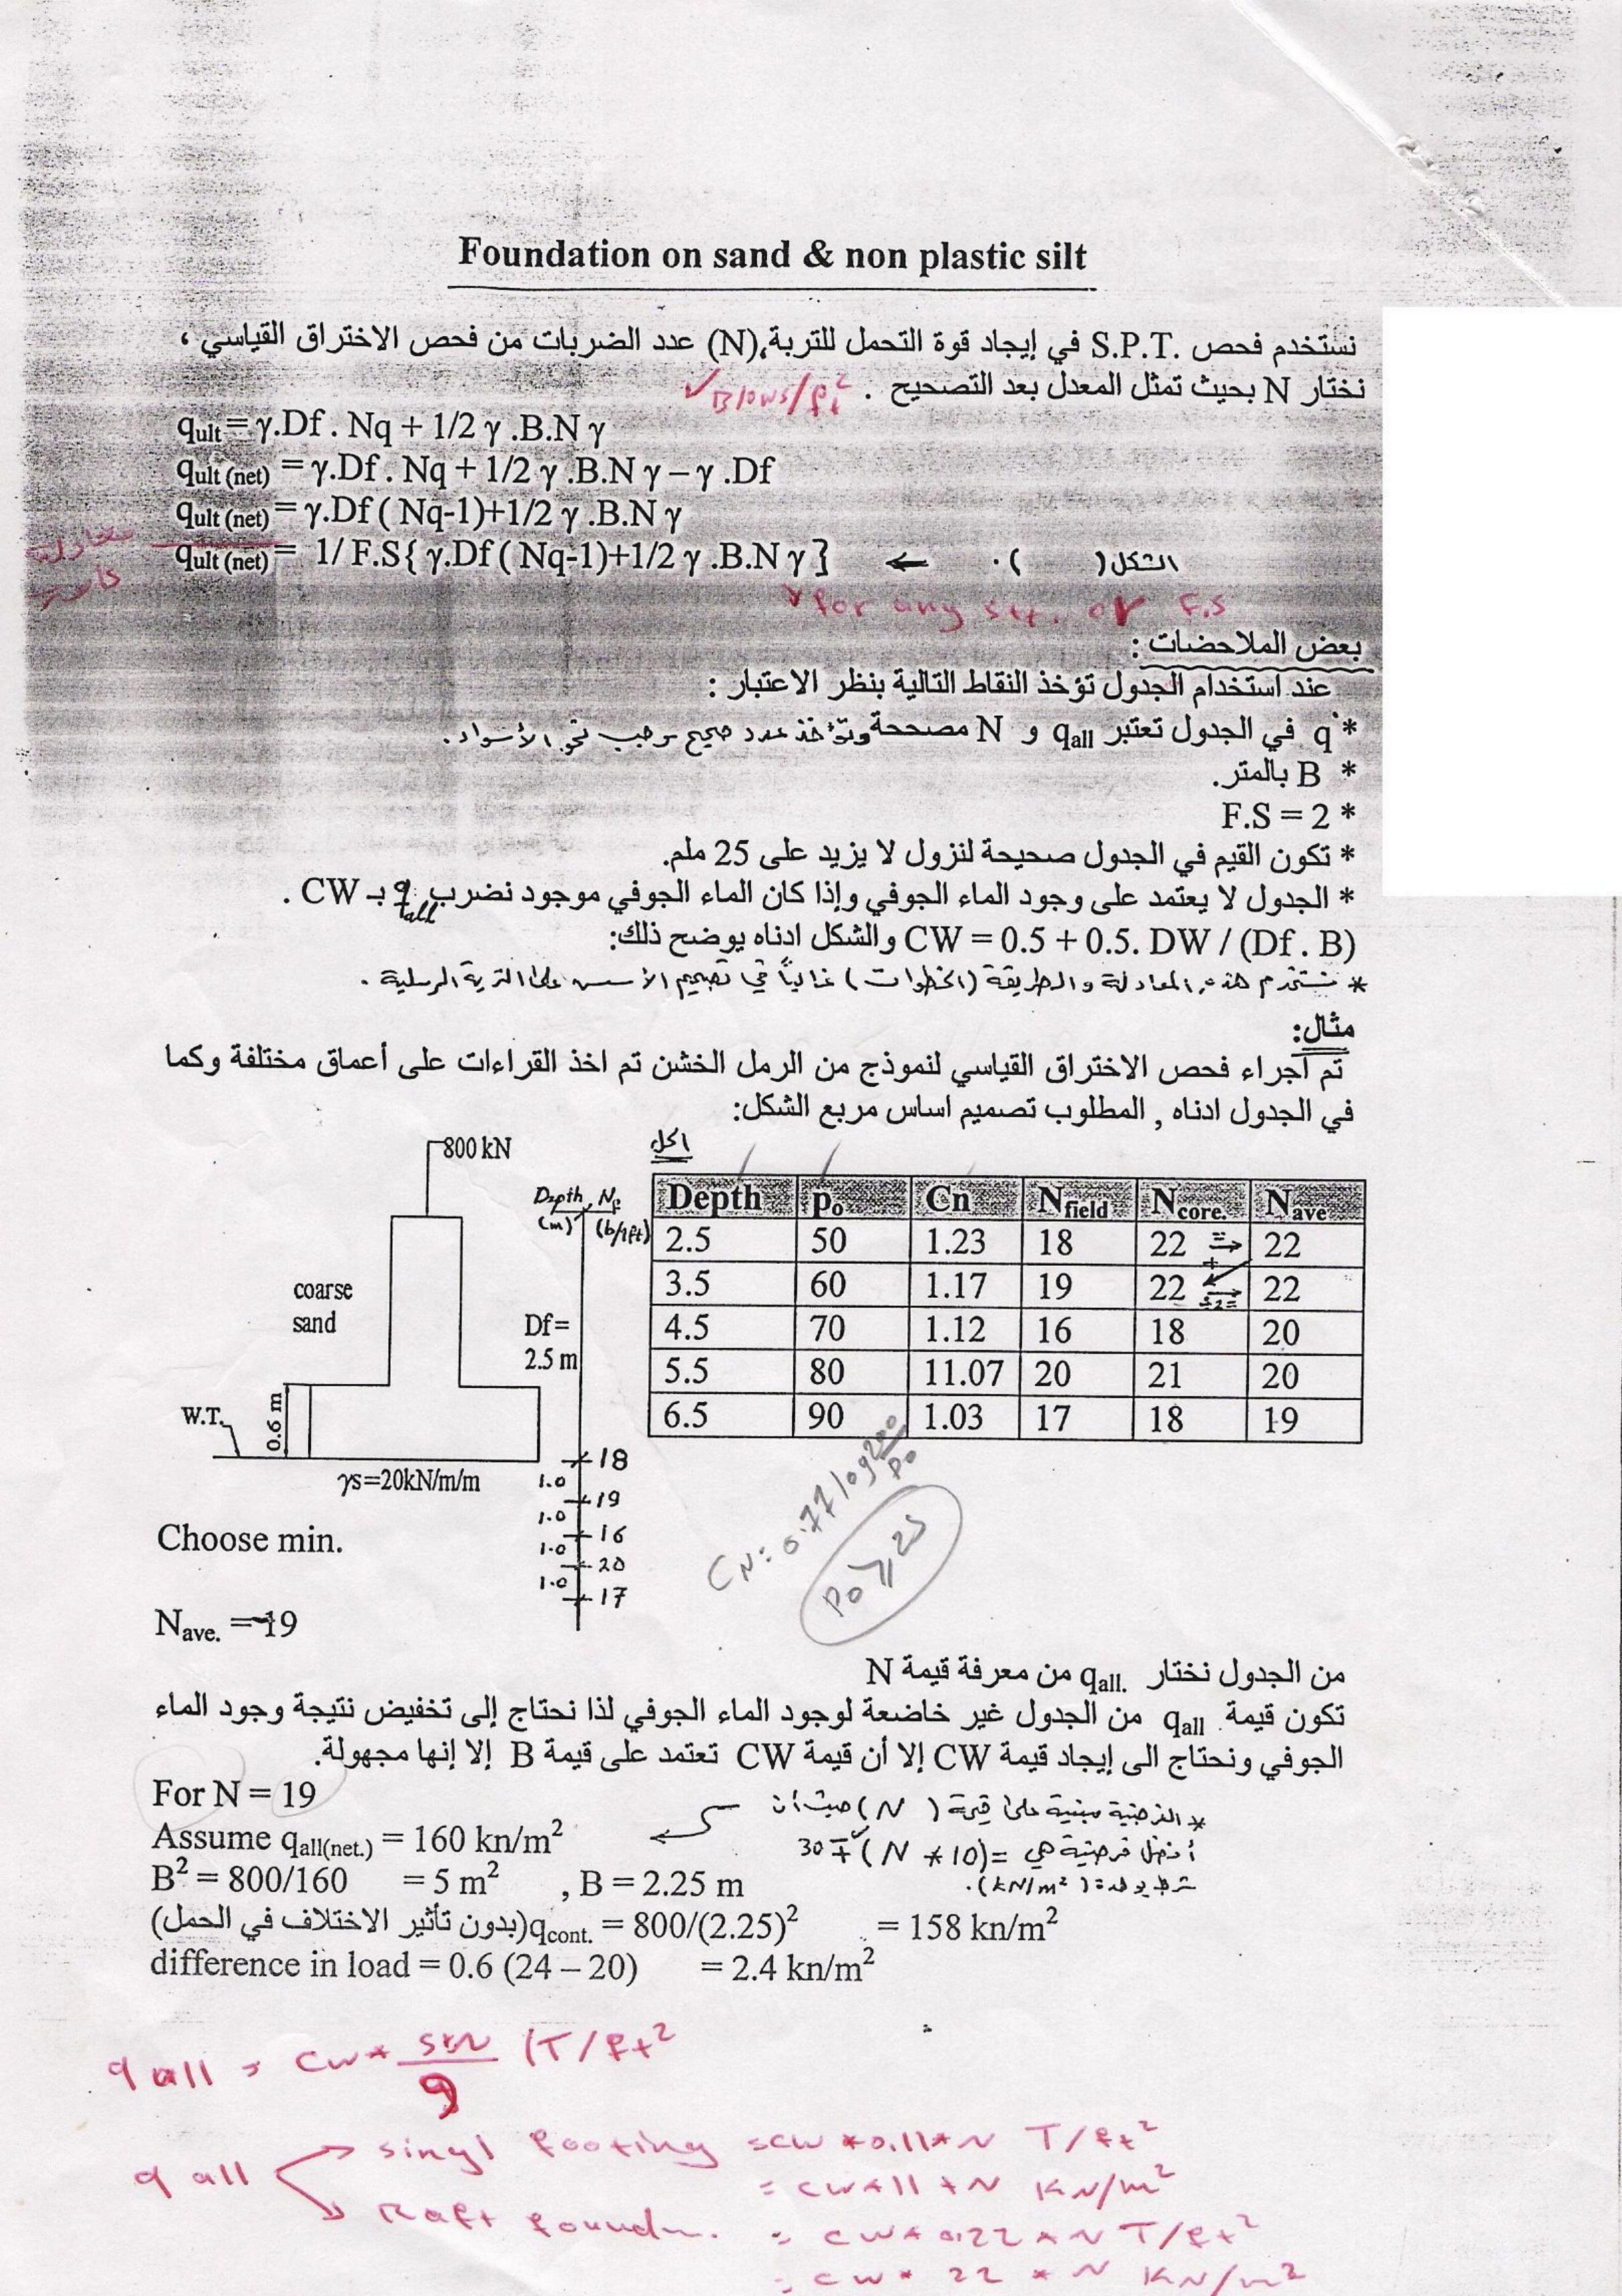 Foundation on sand & non plastic silt
نستخدم فحص S.P.T. في إيجاد قوة التحمل للتربة،(N) عدد الضربات من فحص الاختراق القياسي ،
نختار N بحيث تمثل المعدل بعد التصحيح .
Blows/ft²
qult = γ.Df . Nq + 1/2 γ .B.N γ
qult (net) = γ.Df . Nq + 1/2 γ .B.N γ – γ .Df
qult (net) = γ.Df ( Nq-1)+1/2 γ .B.N γ
qult (net) = 1/ F.S{ γ.Df ( Nq-1)+1/2 γ .B.N γ } ← . ( ) الشكل
for any set. or F.S
بعض الملاحضات :
عند استخدام الجدول تؤخذ النقاط التالية بنظر الاعتبار :
* q في الجدول تعتبر qall و N مصححة وتؤخذ عدد صحيح
* B بالمتر.
* F.S = 2
* تكون القيم في الجدول صحيحة لنزول لا يزيد على 25 ملم.
* الجدول لا يعتمد على وجود الماء الجوفي وإذا كان الماء الجوفي موجود نضرب qall بـ CW .
CW = 0.5 + 0.5. DW / (Df . B) والشكل ادناه يوضح ذلك:
* نستخدم هذه المعادلة والطريقة (الخطوات) غالباً في تصميم الأسس على التربة الرملية .
مثال:
تم أجراء فحص الاختراق القياسي لنموذج من الرمل الخشن تم اخذ القراءات على أعماق مختلفة وكما
في الجدول ادناه , المطلوب تصميم اساس مربع الشكل:
800 kN
coarse
sand
W.T.
0.6 m
γs=20kN/m/m
Depth (m)
Nf (b/1ft)
Df=
2.5 m
18
1.0
19
1.0
16
1.0
20
1.0
17
الحل
Depth po Cn Nfield Ncore. Nave
2.5 50 1.23 18 22 = 22
3.5 60 1.17 19 22 ÷2= 22
4.5 70 1.12 16 18 20
5.5 80 11.07 20 21 20
6.5 90 1.03 17 18 19
CN = 0.77 log 2000/Po
Po ≥ 25
Choose min.
Nave. = 19
من الجدول نختار qall. من معرفة قيمة N
تكون قيمة qall من الجدول غير خاضعة لوجود الماء الجوفي لذا نحتاج إلى تخفيض نتيجة وجود الماء
الجوفي ونحتاج الى إيجاد قيمة CW إلا أن قيمة CW تعتمد على قيمة B إلا إنها مجهولة.
For N = 19
* الفرضية مبنية على قيمة ( N ) حيث أن
Assume qall(net.) = 160 kn/m²
أفضل فرضية هي = (N * 10) ∓ 30
B² = 800/160 = 5 m² , B = 2.25 m
(kN/m²)
qcont. = 800/(2.25)² = 158 kn/m² (بدون تأثير الاختلاف في الحمل)
difference in load = 0.6 (24 – 20) = 2.4 kn/m²
q all = cw * 5*N/9 (T/ft²
q all
singl footing = cw * 0.11 * N T/ft²
= cw * 11 * N KN/m²
Raft foundn. = cw * 0.22 * N T/ft²
= cw * 22 * N KN/m²